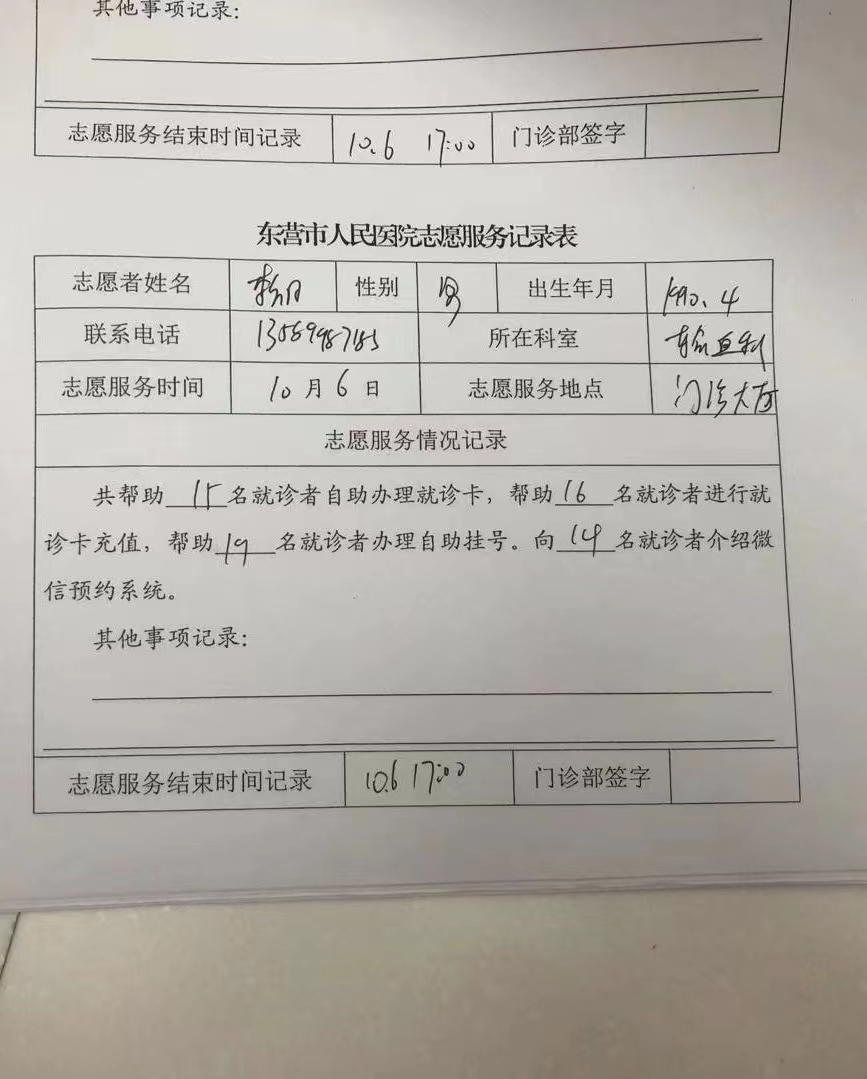 其他事项记录:
志愿服务结束时间记录 10.6 17:00 门诊部签字
东营市人民医院志愿服务记录表
志愿者姓名 性别 男 出生年月 1990.4
联系电话 所在科室 输血科
志愿服务时间 10月6日 志愿服务地点 门诊大厅
志愿服务情况记录
共帮助 15 名就诊者自助办理就诊卡，帮助 16 名就诊者进行就
诊卡充值，帮助 19 名就诊者办理自助挂号。向 14 名就诊者介绍微
信预约系统。
其他事项记录:
志愿服务结束时间记录 10.6 17:00 门诊部签字